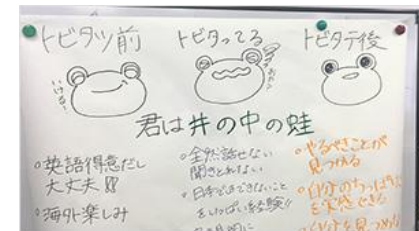 トビタツ前
トビタってる
トビタテ後
いけるー
君は井の中の蛙
○英語得意だし
大丈夫!!
○海外楽しみ
○全然話せない
聞きとれない
○日本ではできないこと
をいっぱい経験!!
○やるべきことが
見つかる
○自分のちっぽけさ
を実感できる
○自分を見つめ